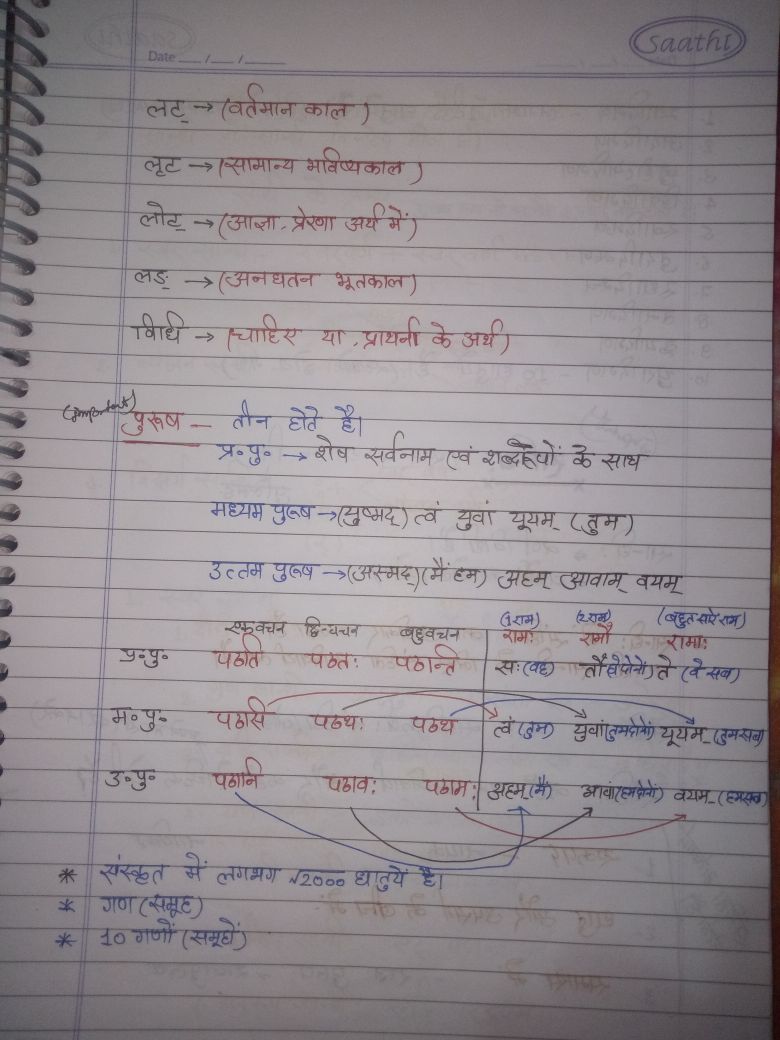 Saathi
Date __/__/__
लट् → (वर्तमान काल)
लृट → (सामान्य भविष्यकाल)
लोट् → (आज्ञा, प्रेरणा अर्थ में)
लङ् → (अनद्यतन भूतकाल)
विधि → (चाहिए या, प्राथना के अर्थ)
(important) पुरूष — तीन होते है।
प्र॰पु॰ → शेष सर्वनाम एवं शब्दरूपों के साथ
मध्यम पुरूष → (युष्मद्) त्वं युवां यूयम् (तुम)
उत्तम पुरूष → (अस्मद्) (मैं हम) अहम् आवाम् वयम्
(1 राम) (2 राम) (बहुत सारे राम)
एकवचन द्वि-वचन बहुवचन रामः रामौ रामाः
प्र॰पु॰ पठति पठतः पठन्ति सः (वह) तौ (वे दोनों) ते (वे सब)
म॰पु॰ पठसि पठथः पठथ त्वं (तुम) युवां (तुम दोनों) यूयम् (तुम सब)
उ॰पु॰ पठामि पठावः पठामः अहम् (मैं) आवां (हम दोनों) वयम् (हम सब)
* संस्कृत में लगभग 2000 धातुयें है।
* गण (समूह)
* 10 गणों (समूहों)